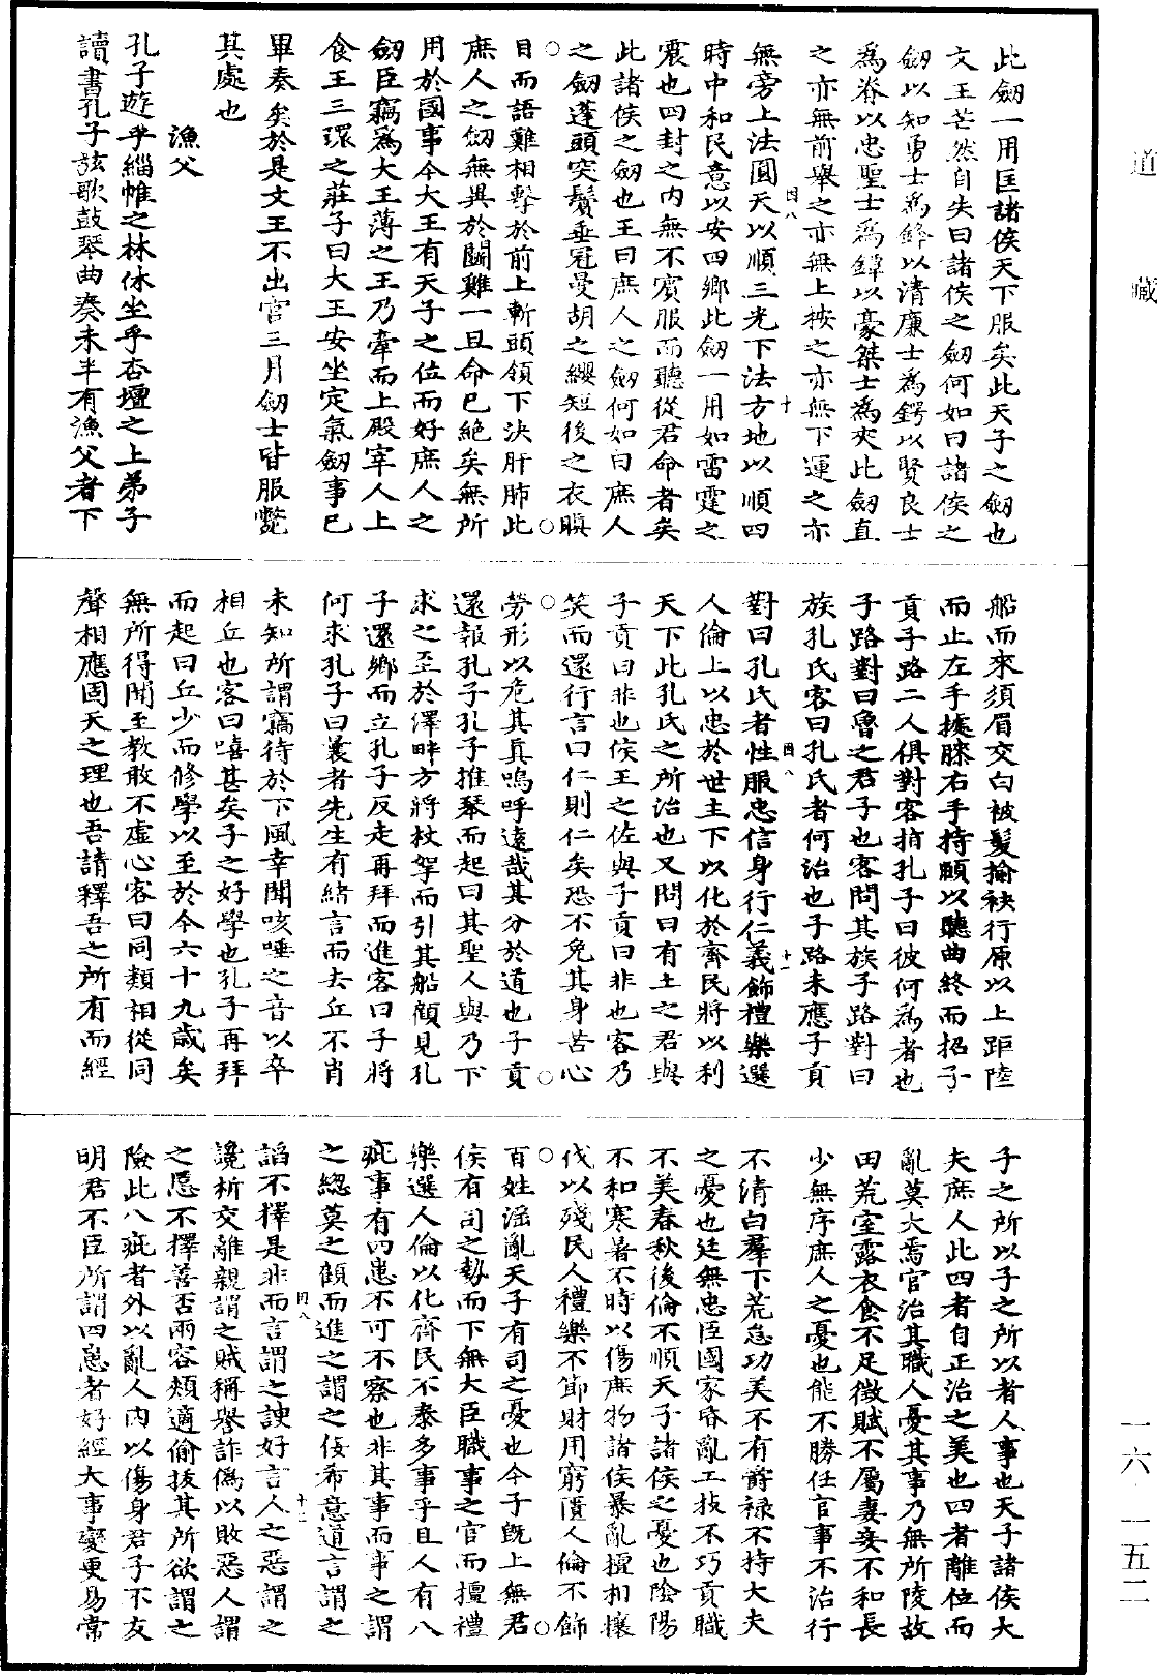 道藏
此劒一用匡諸侯天下服矣此天子之劒也
文王芒然自失曰諸侯之劒何如曰諸侯之
劒以知勇士爲鋒以清廉士爲鍔以賢良士
爲脊以忠聖士爲鐔以豪桀士爲夾此劒直
之亦無前舉之亦無上按之亦無下運之亦
四八　十
無旁上法圓天以順三光下法方地以順四
時中和民意以安四鄉此劒一用如雷霆之
震也四封之内無不賓服而聽從君命者矣
此諸侯之劒也王曰庶人之劒何如曰庶人
之劒蓬頭突鬢垂冠曼胡之纓短後之衣瞋
○　○
目而語難相擊於前上斬頭領下決肝肺此
庶人之劒無異於鬭雞一旦命已絶矣無所
用於國事今大王有天子之位而好庶人之
劒臣竊爲大王薄之王乃牽而上殿宰人上
食王三環之莊子曰大王安坐定氣劒事已
畢奏矣於是文王不出宫三月劒士皆服斃
其處也
漁父
孔子遊乎緇帷之林休坐乎杏壇之上弟子
讀書孔子弦歌鼓琴曲奏未半有漁父者下
船而來須眉交白被髮揄袂行原以上距陸
而止左手據膝右手持頤以聽曲終而招子
貢子路二人俱對客指孔子曰彼何爲者也
子路對曰魯之君子也客問其族子路對曰
族孔氏客曰孔氏者何治也子路未應子貢
四八　十一
對曰孔氏者性服忠信身行仁義飾禮樂選
人倫上以忠於世主下以化於齊民將以利
天下此孔氏之所治也又問曰有土之君與
子貢曰非也侯王之佐與子貢曰非也客乃
笑而還行言曰仁則仁矣恐不免其身苦心
○　○
勞形以危其真嗚呼遠哉其分於道也子貢
還報孔子孔子推琴而起曰其聖人與乃下
求之至於澤畔方將杖拏而引其船顧見孔
子還鄉而立孔子反走再拜而進客曰子將
何求孔子曰曩者先生有緒言而去丘不肖
未知所謂竊待於下風幸聞咳唾之音以卒
相丘也客曰嘻甚矣子之好學也孔子再拜
而起曰丘少而修學以至於今六十九歲矣
無所得聞至教敢不虚心客曰同類相從同
聲相應固天之理也吾請釋吾之所有而經
子之所以子之所以者人事也天子諸侯大
夫庶人此四者自正治之美也四者離位而
亂莫大焉官治其職人憂其事乃無所陵故
田荒室露衣食不足徵賦不屬妻妾不和長
少無序庶人之憂也能不勝任官事不治行
不清白羣下荒怠功美不有爵禄不持大夫
之憂也廷無忠臣國家昏亂工技不巧貢職
不美春秋後倫不順天子諸侯之憂也陰陽
不和寒暑不時以傷庶物諸侯暴亂擅相攘
伐以殘民人禮樂不節財用窮匱人倫不飾
○　○
百姓淫亂天子有司之憂也今子既上無君
侯有司之勢而下無大臣職事之官而擅禮
樂選人倫以化齊民不泰多事乎且人有八
疵事有四患不可不察也非其事而事之謂
之緫莫之顧而進之謂之佞希意道言謂之
四八　十二
諂不擇是非而言謂之諛好言人之惡謂之
讒析交離親謂之賊稱譽詐僞以敗惡人謂
之慝不擇善否兩容頰適偷拔其所欲謂之
險此八疵者外以亂人内以傷身君子不友
明君不臣所謂四患者好經大事變更易常
一六·一五二